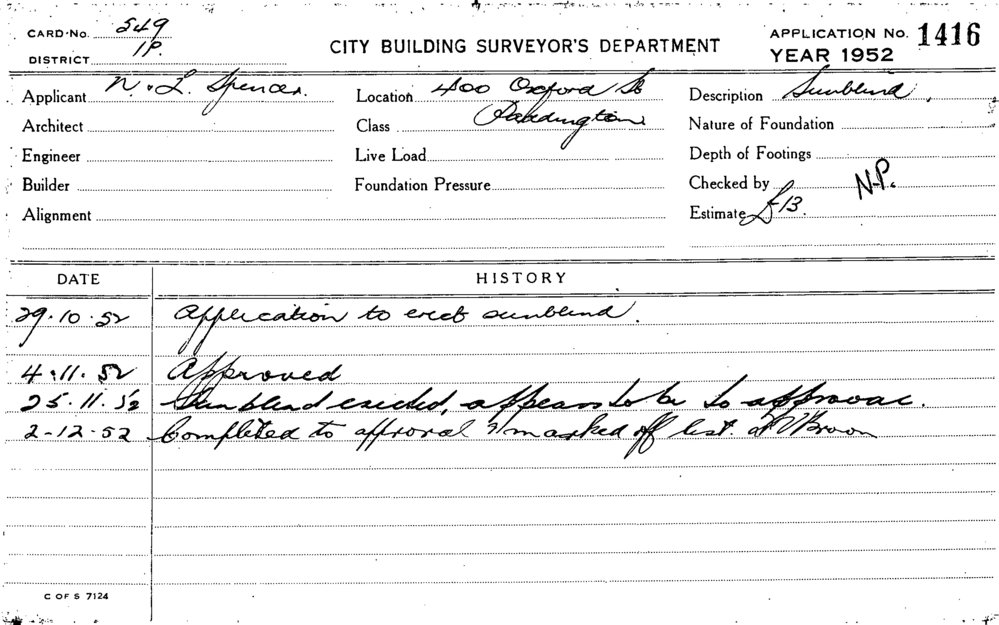 CARD·No. 549
DISTRICT 1P.
CITY BUILDING SURVEYOR'S DEPARTMENT
APPLICATION No. 1416
YEAR 1952
Applicant N. L. Spencer. Location 400 Oxford St Description Sunblind.
Architect Class Paddington Nature of Foundation
Engineer Live Load Depth of Footings
Builder Foundation Pressure Checked by N.P.
Alignment Estimate £13.
DATE HISTORY
29.10.52 Application to erect sunblind.
4.11.52 Approved
25.11.52 Sunblind erected, appears to be to approval.
2-12-52 Completed to approval & marked off list.
C OF S 7124